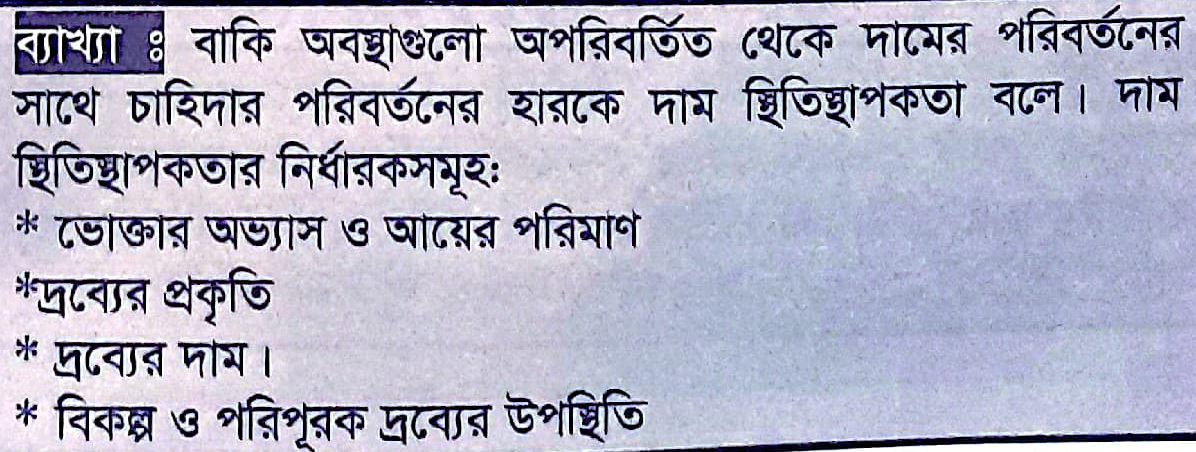 ব্যাখ্যা ঃ বাকি অবস্থাগুলো অপরিবর্তিত থেকে দামের পরিবর্তনের
সাথে চাহিদার পরিবর্তনের হারকে দাম স্থিতিস্থাপকতা বলে। দাম
স্থিতিস্থাপকতার নির্ধারকসমূহঃ
* ভোক্তার অভ্যাস ও আয়ের পরিমাণ
*দ্রব্যের প্রকৃতি
* দ্রব্যের দাম।
* বিকল্প ও পরিপূরক দ্রব্যের উপস্থিতি